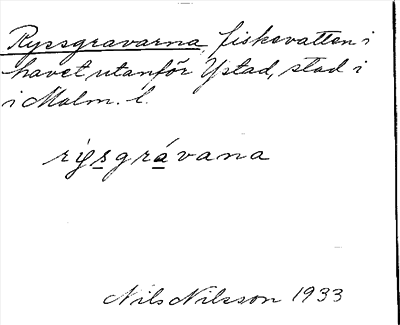 Ryssgravarna, fiskevatten i
havet utanför Ystad, stad i
i Malm. l.
rigsgrávana
Nils Nilsson 1933